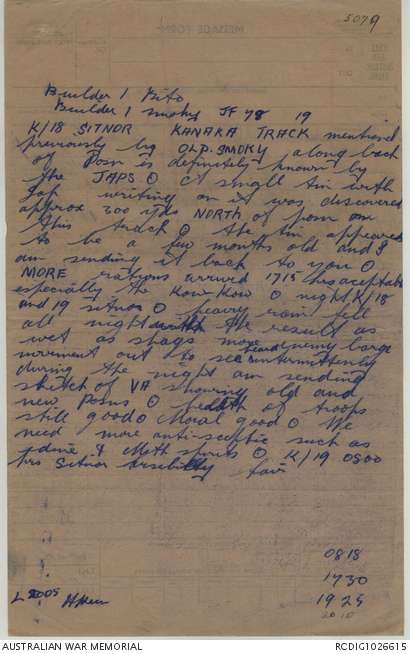 5079
MESSAGE FORM
Builder 1 Bito
Builder 1 Smoky JF 78 19
K/18 SITNOR KANAKA TRACK mentioned
previously by O.L.P. SMOKY along back
of Posn is definitely known by
the JAPS O A small tin with
Jap writing on it was discovered
approx 300 yds NORTH of posn on
this track O the tin appeared
to be a few months old and I
am sending it back to you O
MORE rations arrived 1715 hrs acceptable
especially the Kow Kow O night K/18
and 19 sitnor O heavy rain fell
all night with the result as
wet as shags more heard enemy barge
movement out to sea intermittently
during the night am sending
sketch of VA showing old and
new Posns O health of troops
still good O Moral good O We
need more anti-sceptic such as
iodine & Meth spirits O K/19 0800
hrs Sitnor visibility fair
0818
1730
1925
2010
L 2005
AUSTRALIAN WAR MEMORIAL
RCDIG1026615